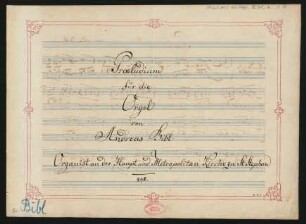 Præludium
für die
Orgel
von
Andreas Bibl
Organist an der Haupt und Metropolitan Kirche zu St. Stephan
Bibl